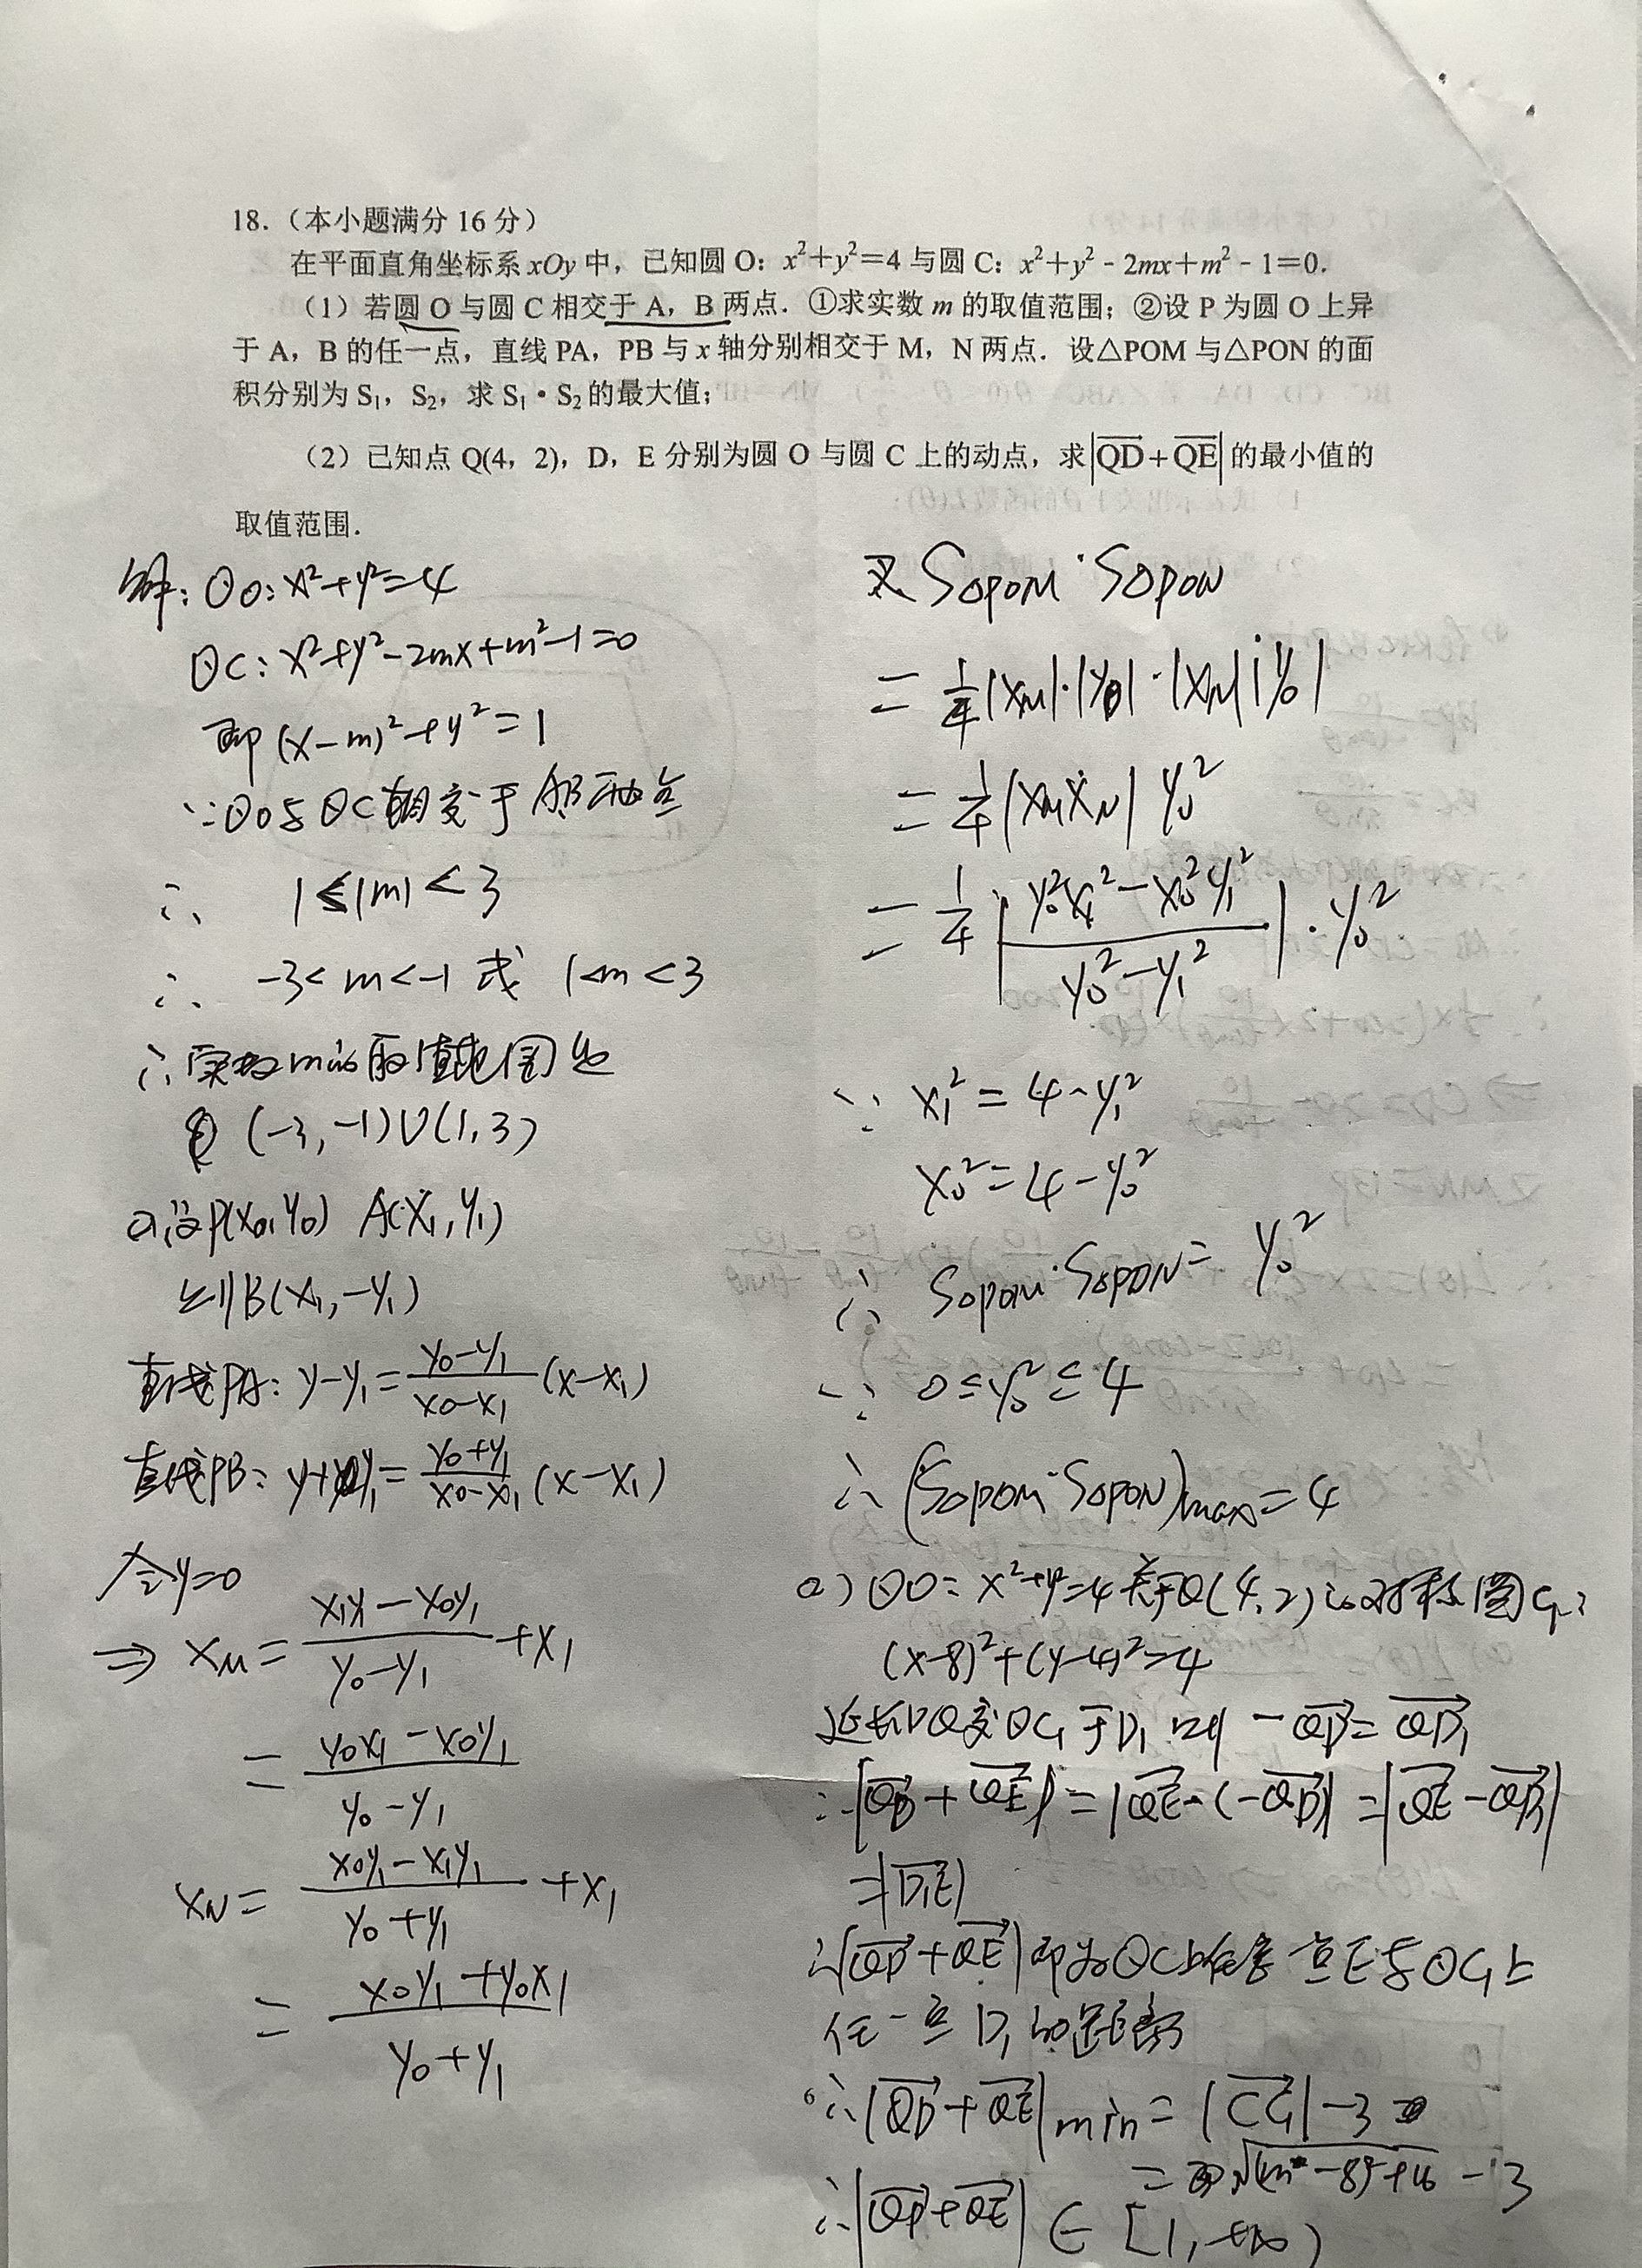 18.（本小题满分 16 分）
在平面直角坐标系 xOy 中，已知圆 O：x²+y²=4 与圆 C：x²+y² - 2mx+m² - 1=0.
（1）若圆 O 与圆 C 相交于 A，B 两点．①求实数 m 的取值范围；②设 P 为圆 O 上异
于 A，B 的任一点，直线 PA，PB 与 x 轴分别相交于 M，N 两点．设△POM 与△PON 的面
积分别为 S₁，S₂，求 S₁·S₂ 的最大值；
（2）已知点 Q(4，2)，D，E 分别为圆 O 与圆 C 上的动点，求|QD+QE| 的最小值的
取值范围．
解：⊙O：x²+y²=4
⊙C：x²+y²-2mx+m²-1=0
即 (x-m)²+y²=1
∵⊙O与⊙C相交于AB两点
∴ 1≤|m|<3
∴ -3<m<-1 或 1<m<3
∴实数m的取值范围是
(-3,-1)∪(1,3)
②设P(x₀,y₀) A(x₁,y₁)
B(x₁,-y₁)
直线PA：y-y₁=(y₀-y₁)/(x₀-x₁)(x-x₁)
直线PB：y+y₁=(y₀+y₁)/(x₀-x₁)(x-x₁)
令y=0
⇒ x_M=(x₁y₁-x₀y₁)/(y₀-y₁)+x₁
=(y₀x₁-x₀y₁)/(y₀-y₁)
x_N=(x₀y₁-x₁y₁)/(y₀+y₁)+x₁
=(x₀y₁+y₀x₁)/(y₀+y₁)
又 S△POM·S△PON
=1/4|x_M|·|y₀|·|x_N||y₀|
=1/4|x_M x_N| y₀²
=1/4|(y₀²x₁²-x₀²y₁²)/(y₀²-y₁²)|·y₀²
∵ x₁²=4-y₁²
x₀²=4-y₀²
∴ S△POM·S△PON=y₀²
∵ 0≤y₀²≤4
∴ (S△POM·S△PON)max=4
2) ⊙O：x²+y²=4关于Q(4,2)的对称圆C₁：
(x-8)²+(y-4)²=4
延长DQ交⊙C₁于D₁ 则 -QD=QD₁
∴|QD+QE|=|QE-(-QD)|=|QE-QD₁|
=|D₁E|
∴|QD+QE|即为⊙C上任意一点E与⊙C₁上
任一点D₁的距离
∴|QD+QE|min=|CC₁|-3
=√(m-8)²+16 -3
∴|QD+QE| ∈ [1,+∞)